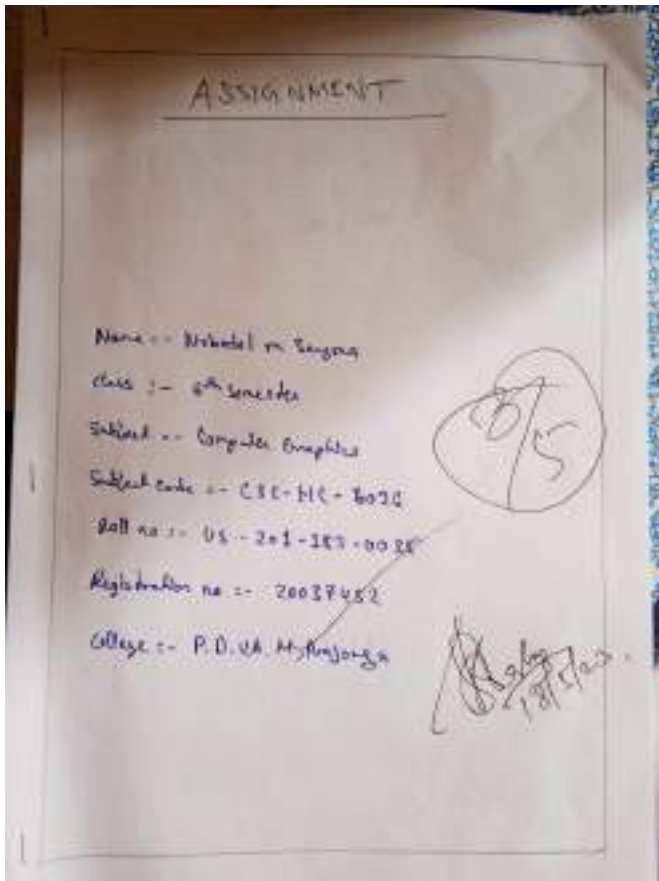 ASSIGNMENT
Name :-
Class :- 6th Semester
Subject :- Computer Graphics
Subject code :- CSC-HC-6026
Roll no :- US-201-183-0025
Registration no :- 20037452
College :- P.D.UA.M,
5
18/5/23